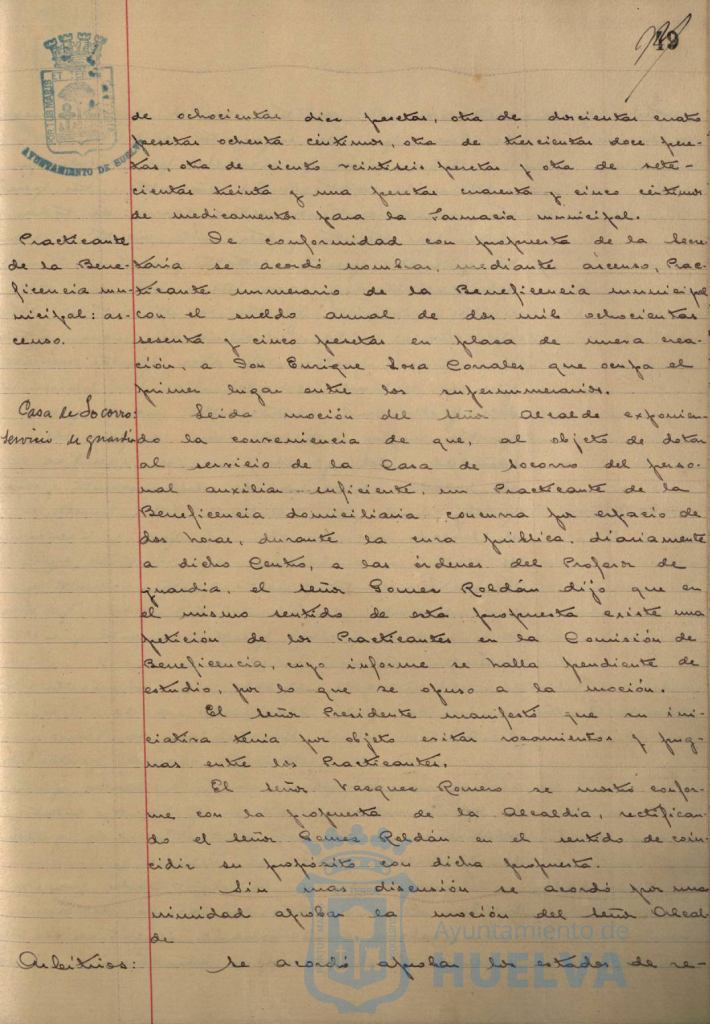 49
AYUNTAMIENTO DE HUELVA
de ochocientas diez pesetas, otra de doscientas cuatro
pesetas ochenta céntimos, otra de trescientas doce pese-
tas, otra de ciento veintiseis pesetas y otra de sete-
cientas treinta y una pesetas cuarenta y cinco céntimos
de medicamentos para la Farmacia municipal.
Practicante
de la Bene-
ficencia mu-
nicipal: as-
censo.
De conformidad con propuesta de la Secre-
taría se acordó nombrar, mediante ascenso, Prac-
ticante numerario de la Beneficencia municipal
con el sueldo anual de dos mil ochocientas
sesenta y cinco pesetas en plaza de nueva crea-
ción, a Don Enrique Sosa Corrales que ocupa el
primer lugar entre los supernumerarios.
Casa de Socorro:
servicio de guardia
Leida moción del Señor Alcalde exponien-
do la conveniencia de que, al objeto de dotar
al servicio de la Casa de Socorro del perso-
nal auxiliar suficiente, un Practicante de la
Beneficencia domiciliaria concurra por espacio de
dos horas, durante la cura pública, diariamente
a dicho Centro, a las órdenes del Profesor de
guardia, el señor Gomez Roldán dijo que en
el mismo sentido de esta propuesta existe una
petición de los Practicantes en la Comisión de
Beneficencia, cuyo informe se halla pendiente de
estudio, por lo que se opuso a la moción.
El Señor Presidente manifestó que su ini-
ciativa tenia por objeto evitar rozamientos y pug-
nas entre los Practicantes.
El señor Vazquez Romero se mostró confor-
me con la propuesta de la Alcaldía, rectifican-
do el Señor Gomez Roldán en el sentido de coin-
cidir su propósito con dicha propuesta.
Sin mas discusión se acordó por una-
nimidad aprobar la moción del Señor Alcal-
de
Arbitrios:
Se acordó aprobar los estados de re-
Ayuntamiento de
HUELVA